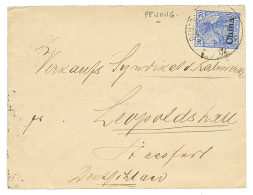 PENANG-
China
Verkaufs Syndikat d Kaliwerke
Leopoldshall
Stassfurt
Deutschland